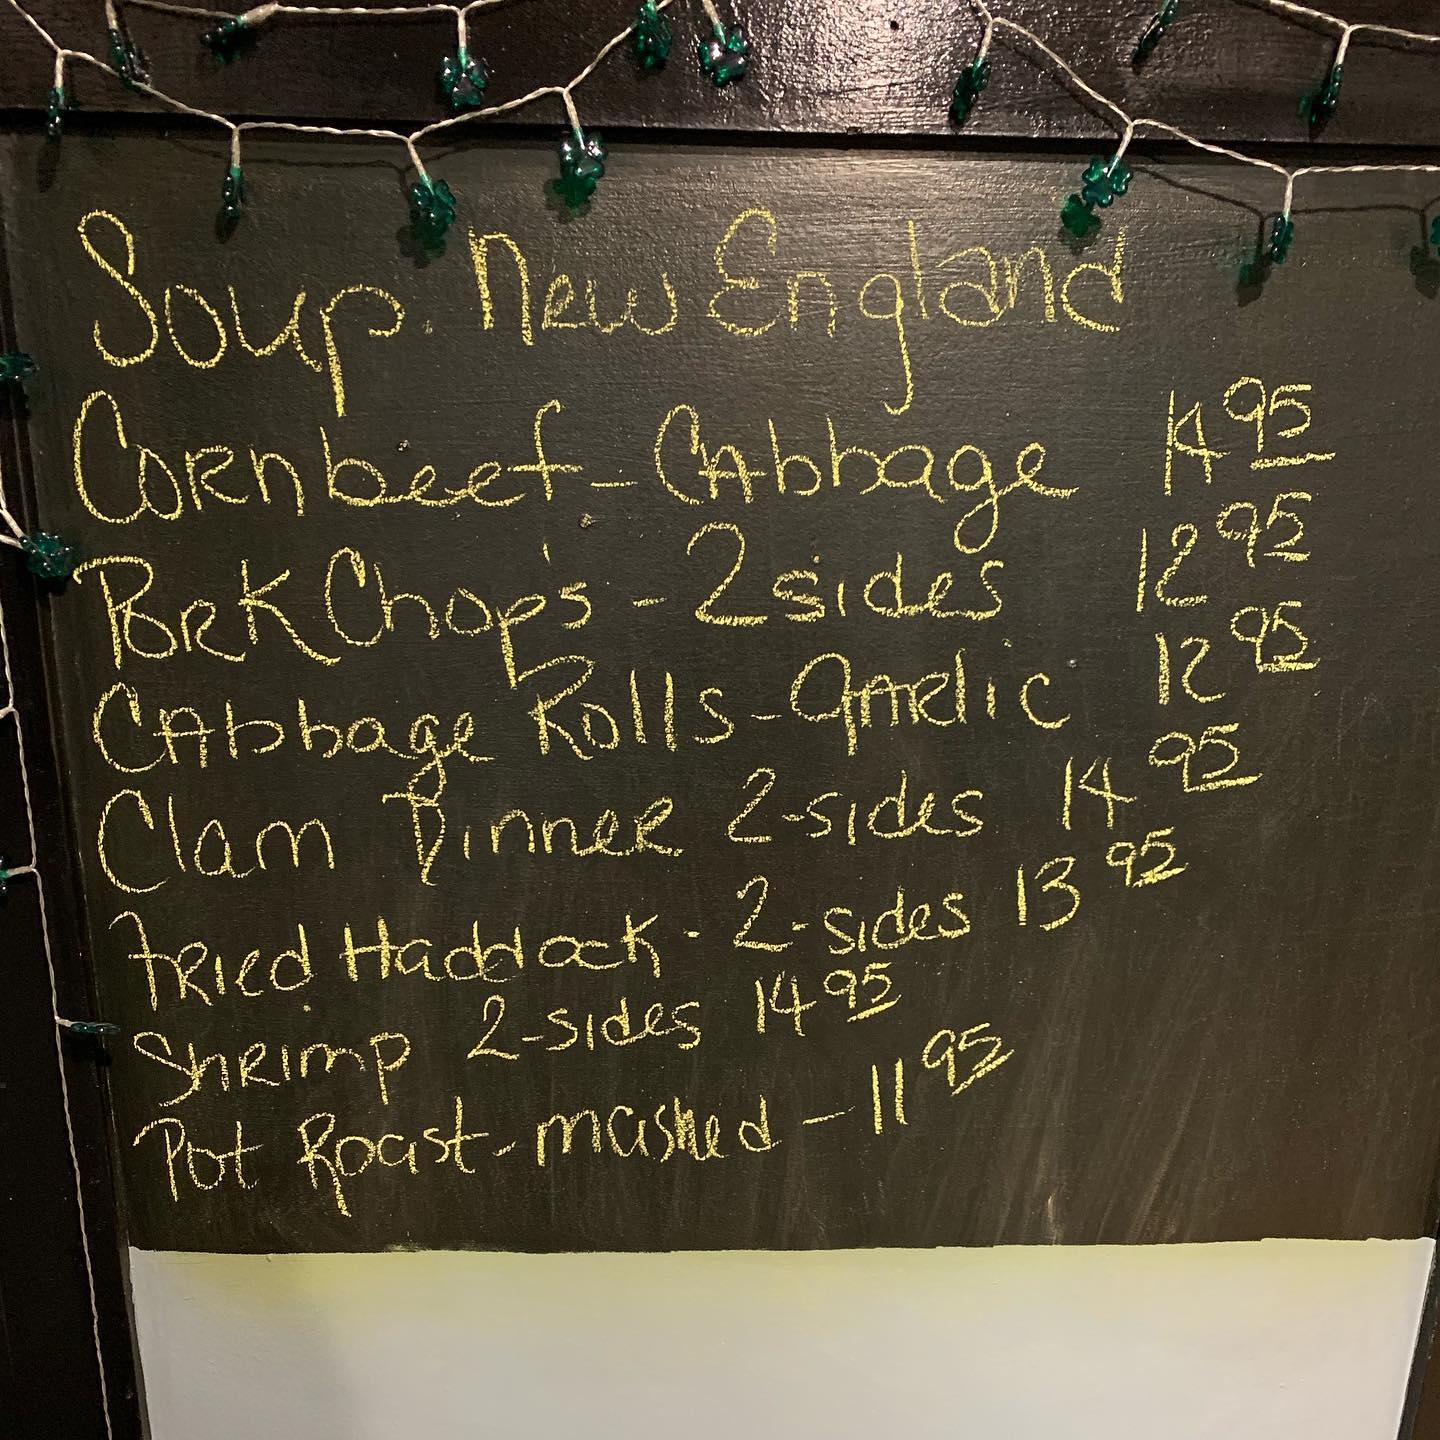 Soup. New England
Cornbeef - Cabbage 14 95
Pork Chop's - 2 sides 12 95
Cabbage Rolls - Garlic 12 95
Clam Dinner 2-sides 14 95
Fried Haddock - 2-sides 13 95
Shrimp 2-sides 14 95
Pot Roast - mashed - 11 95